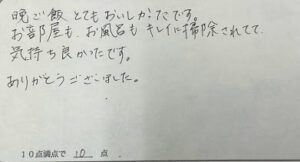 晩ご飯 とてもおいしかったです。
お部屋も、お風呂も キレイに掃除されてて
気持ち良かったです。
ありがとうございました。
10点満点で 10 点.